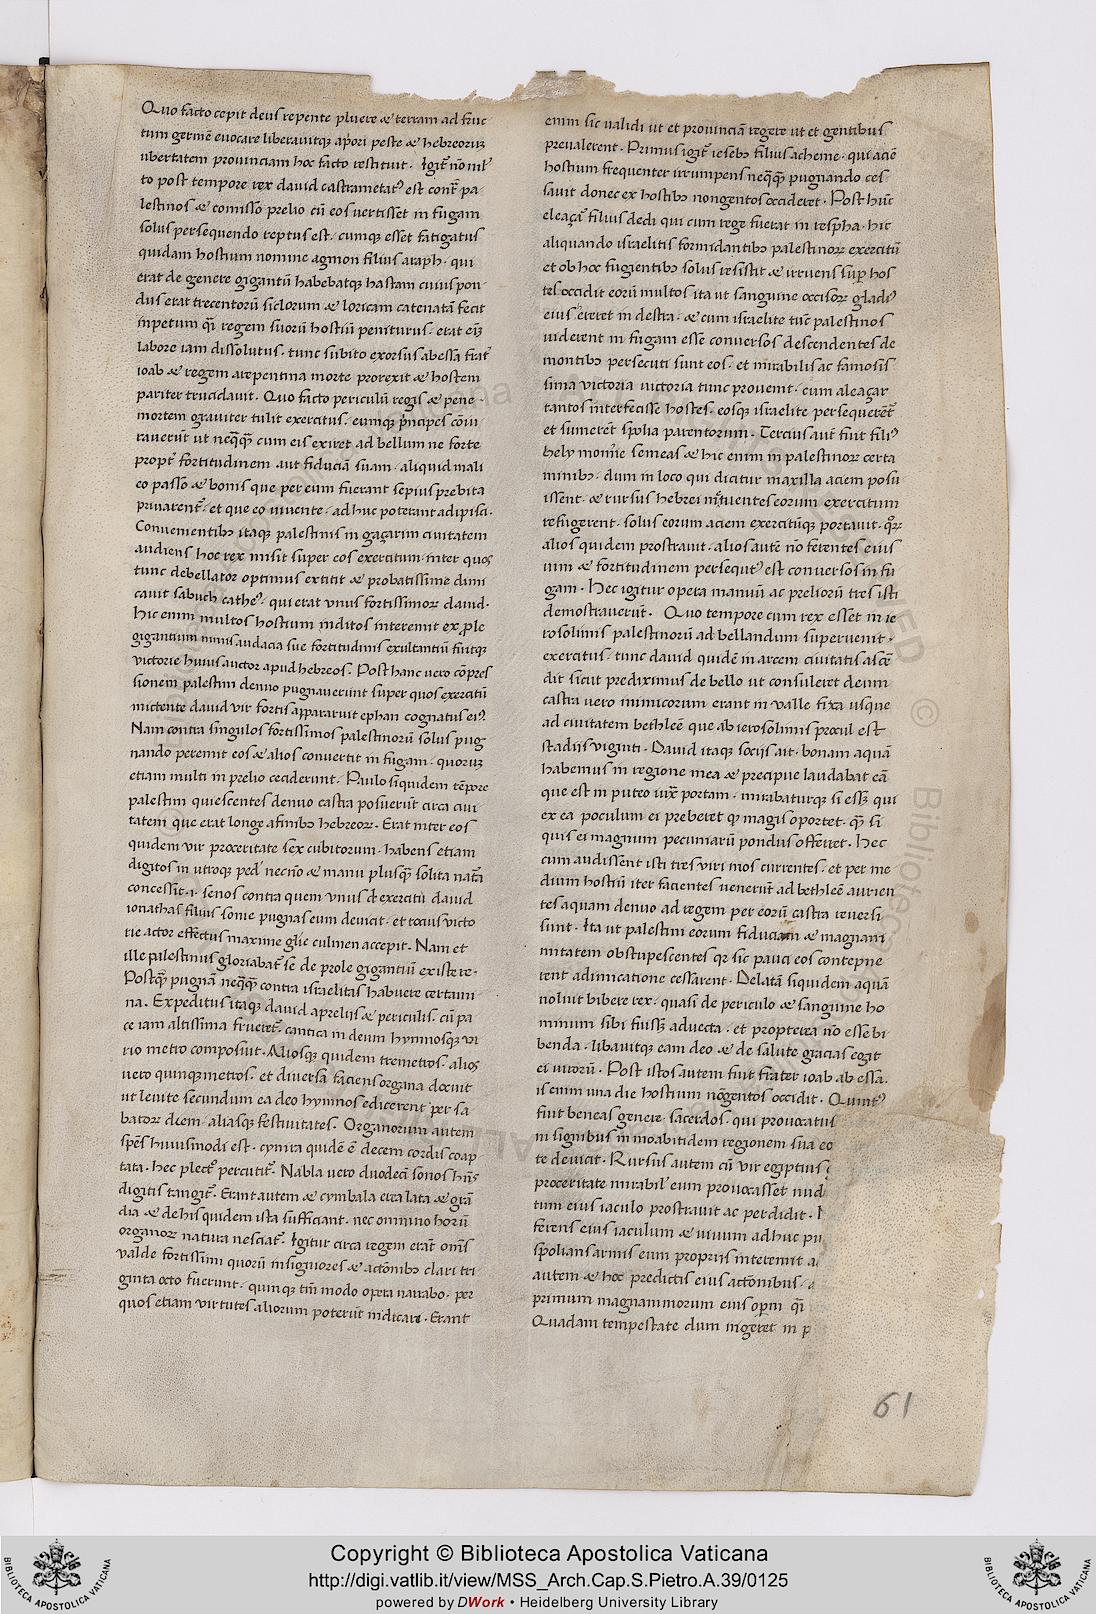 Quo facto cepit deus repente pluere & terram ad fruc
tum germē evocare liberavitq; apori peste & hebreorū
ubertatem provinciam hoc facto restituit. Igit̄ nō ml̄
to post tempore rex david castrametatꝰ est cont̄ pa
lestinos & comisso prelio cū eos vertisset in fugam
solus persequendo reptus est. cumq; esset fatigatus
quidam hostium nomine agmon filius araph. qui
erat de genere gigantū habebatq; hastam cuius pon
dus erat trecentorū siclorum & loricam catenatā fecit
inpetum q̄i regem suorū hostiū periturus. erat eī
labore iam dissolutus. tunc subito exorsus abessa frat̄
ioab & regem arepentina morte protexit & hostem
pariter trucidavit. Quo facto periculū regis & pene
mortem graviter tulit exercitus. eumq; p̄ncipes cōiu
raverūt ut neq̄q̄ cum eis exiret ad bellum ne forte
propt̄ fortitudinem aut fiduciā suam. aliquid mali
eo passo & bonis que per eum fuerant sepius prebita
privarent̄. et que eo vivente. ad huc poterant adipisci.
Convenientibꝰ itaq; palestinis in gaçarim civitatem
audiens hoc rex misit super eos exercitum. inter quos
tunc debellator optimus extitit & probatissime dimi
cavit sabuch catheꝰ. qui erat unus fortissimor̄ david.
hic enim multos hostium inditos interemit ex p̄le
gigantium nimis audacia sue fortitudinis exultantiū fuitq;
victorie huius auctor apud hebreos. Post hanc vero cōpres
sionem palestini denuo pugnaverunt super quos exercitū
mictente david vir fortis apparavit ephan cognatus eiꝰ.
Nam contra singulos fortissimos palestinorū solus pug
nando peremit eos & alios convertit in fugam. quorū
etiam multi in prelio ceciderunt. Paulo siquidem tēpore
palestini quiescentes denuo castra posuerūt circa civi
tatem que erat longe afinibꝰ hebreor̄. Erat inter eos
quidem vir proceritate sex cubitorum. habens etiam
digitos in utroq; ped' necnō & manu plusq̄ solita nat̄a
concessit. i. senos contra quem unus de exercitū david
ionathas filius somie pugnas eum devicit. et tocius victo
rie actor effectus maxime glie culmen accepit. Nam et
ille palestinus gloriabat̄ se de prole gigantiū existere.
Postq̄ pugnā neq̄q̄ contra israelitas habuere certami
na. Expeditus itaq; david aprelijs & periculis. cū pa
ce iam altissima frueret̄. cantica in deum hymnosq; va
rio metro composuit. Aliosq; quidem tremetros. alios
vero quinq;metros. et diversa faciens organa docuit
ut levite secundum ea deo hymnos edicerent per sa
bator̄ diem. aliasq; festivitates. Organorum autem
spēs huiusmodi est. cynira quidē ē decem cordis coap
tata. hec plect̄ percutit̄. Nabla vero duodecī sonos hn̄s
digitis tangit̄. Erant autem & cymbala erea lata & grā
dia & de his quidem ista sufficiant. nec omnino horū
organor̄ natura nesciat̄. Igitur circa regem erāt om̄s
valde fortissimi quorū insigniores & actonibꝰ clari tri
ginta octo fuerunt. quinq; tm̄ modo opera narrabo. per
quos etiam virtutes aliorum poterūt indicare. Erant
enim sic validi ut et provinciā regere ut et gentibus
prevalerent. Primus igit̄ iesebꝰ filius acheme. qui aciē
hostium frequenter irrumpens neq̄q̄ pugnando ces
savit donec ex hostibꝰ nongentos occideret. Post hūc
eleaçar̄ filius dedi qui cum rege fuerat in respha. hic
aliquando israelitis formidantibꝰ palestinor̄ exercitū
et ob hoc fugientibꝰ solus resistit & irruens sup̄ hos
tes occidit eorū multos ita ut sanguine occisor̄ gladiꝰ
eius hereret in dextra. & cum israelite tūc palestinos
viderent in fugam esse conversos descendentes de
montibꝰ persecuti sunt eos. et mirabilis ac famosis
sima victoria victoria tunc provenit. cum aleaçar
tantos interfecisse hostes. eosq; israelite persequerēt̄
et sumerēt spolia parentorum. Tercius aut̄ fuit filiꝰ
hely nomīe semeas & hic enim in palestinor̄ certa
minibꝰ. dum in loco qui dicitur maxilla aciem posu
issent. & rursus hebrei metuentes eorum exercitum
refugerent. solus eorum aciem exercitūq; portavit. q̄r̄
alios quidem prostravit. alios autē nō ferentes eius
vim & fortitudinem persequtꝰ est conversos in fu
gam. Hec igitur opera manuū ac preliorū tres isti
demostraverūt. Quo tempore cum rex esset in ie
rosolimis palestinorū ad bellandum supervenit.
exercitus. tunc david quidē in arcem civitatis ascē
dit sicut prediximus de bello ut consuleret deum
castra vero inimicorum erant in valle fixa usque
ad civitatem bethleē que ab ierosolimis procul est
stadijs viginti. David itaq; socijs ait. bonam aquā
habemus in regione mea & precipue laudabat eā
que est in puteo iuxta portam. mirabaturq; si esset qui
ex ea poculum ei preberet q̄ magis oportet. q̄ si
quis ei magnum pecuniarū pondus offerret. Hec
cum audissent isti tres viri mos currentes. et per me
dium hostiū iter facientes venerūt ad bethleē aurien
tes aquam denuo ad regem per eorū castra reversi
sunt. Ita ut palestini eorum fiduciam & magnani
mitatem obstupescentes q̄r sic pauci eos contepne
rent adimicatione cessarent. Delatā siquidem aquā
noluit bibere rex. quasi de periculo & sanguine ho
minum sibi fuisse advecta. et propterea nō esse bi
benda. libavitq; eam deo & de salute gracias egit
ei virorū. Post istos autem fuit frater ioab ab essa.
is enim una die hostium nōgentos occidit. Quintꝰ
fuit beneas genere. sacerdos. qui provocatus
in signibus in moabitidem regionem sua eo
te devicit. Rursus autem cū vir egiptius
proceritate mirabil' eum provocasset nud
tum eius iaculo prostravit ac perdidit.
ferens eius iaculum & vivum adhuc pu
spolians armis eum propriis interemit
autem & hoc predictis eius actonibus.
primum magnanimorum eius operi q̄i
Quadam tempestate dum ingeret in p
61
Copyright © Biblioteca Apostolica Vaticana
http://digi.vatlib.it/view/MSS_Arch.Cap.S.Pietro.A.39/0125
powered by DWork • Heidelberg University Library
BIBLIOTECA APOSTOLICA VATICANA
BIBLIOTECA APOSTOLICA VATICANA